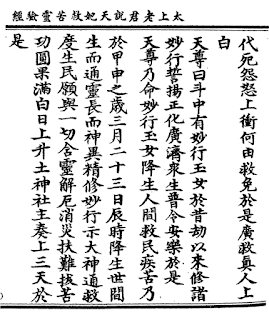 太上老君說天妃救苦靈驗經
代死怨怒上衝何由救免於是廣救真人上
白
天尊曰斗中有妙行玉女於昔劫以來修諸
妙行誓揚正化廣濟衆生普令安樂於是
天尊乃命妙行玉女降生人間救民疾苦乃
於甲申之歲三月二十三日辰時降生世間
生而通靈長而神異精修妙行示大神通救
度生民願與一切含靈解厄消災扶難拔苦
功圓果滿白日上升土神社主奏上三天於
是